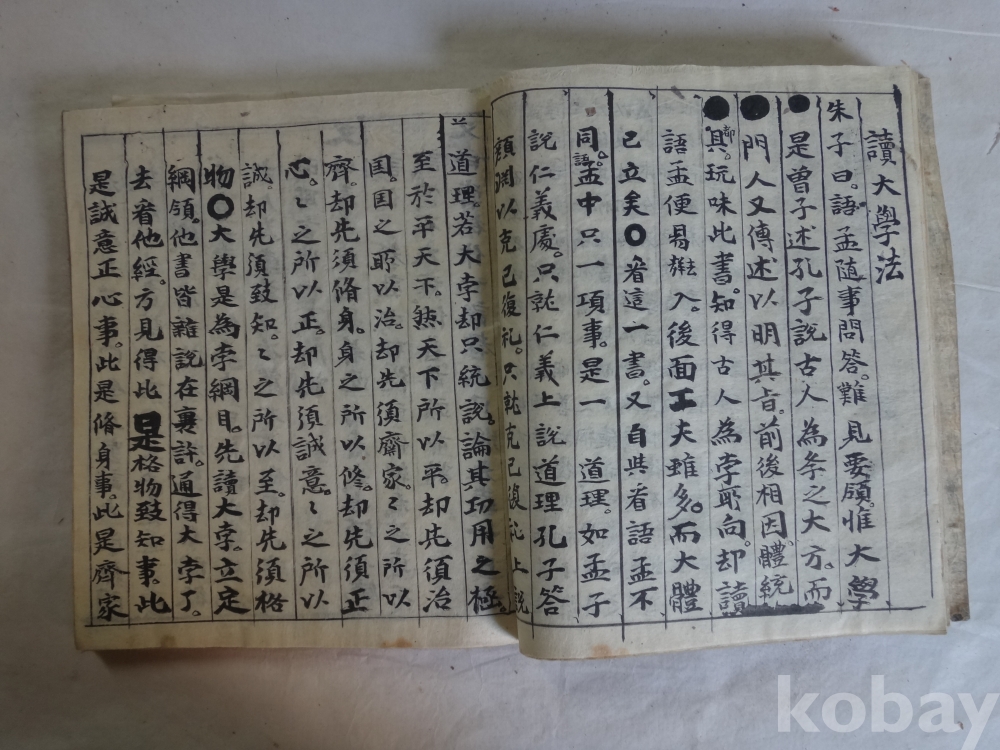 讀大學法
朱子曰。語孟隨事問答。難見要領。惟大學
是曾子述孔子說古人為李之大方。而
門人又傳述以明其旨。前後相因。體統
都其。玩味此書。知得古人為孛所向。却讀
語孟便易入。後面工夫雖多。而大體
已立矣〇看這一書。又自与看語孟不
同。語孟中只一項事。是一道理。如孟子
說仁義處。只就仁義上說道理孔子答
顔淵以克己復礼。只就克己復礼上說
道理。若大孛却只統說。論其功用之極
至於平天下。然天下所以平。却先須治
国。国之所以治。却先須齊家。〻之所以
齊。却先須脩身。身之所以修。却先須正
心。〻之所以正。却先須誠意。〻之所以
誠。却先須致知。〻之所以至。却先須格
物〇大學是為孛綱目。先讀大孛。立定
綱領。他書皆雜說在裏許。通得大孛了。
去看他經。方見得此是格物致知事。此
是誠意正心事。此是脩身事。此是齊家
kobay